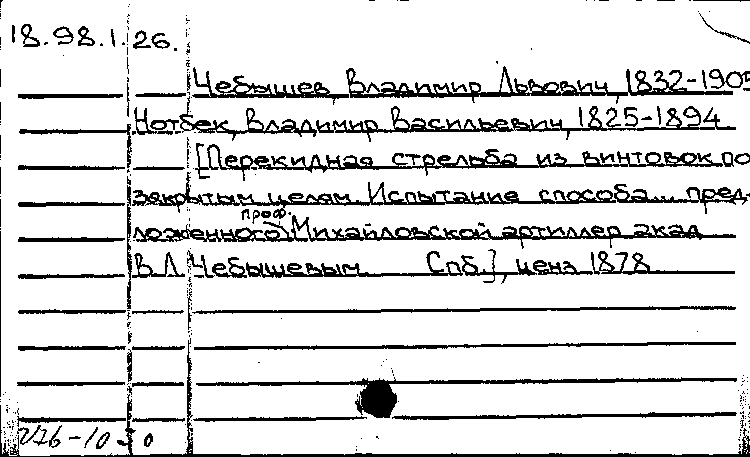 18.98.1.26.
Чебышев, Владимир Львович, 1832-1905
Нотбек, Владимир Васильевич, 1825-1894
[Перекидная стрельба из винтовок по
закрытым целям. Испытание способа... пред-
ложенного проф. Михайловской артиллер акад
В.Л. Чебышевым Спб.], ценз 1878